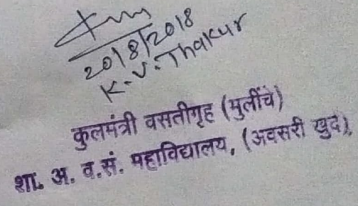 20/8/2018
K.V. Thakur
कुलमंत्री वसतीगृह (मुलींचे)
शा. अ. व.सं. महाविद्यालय, (अवसरी खुर्द)